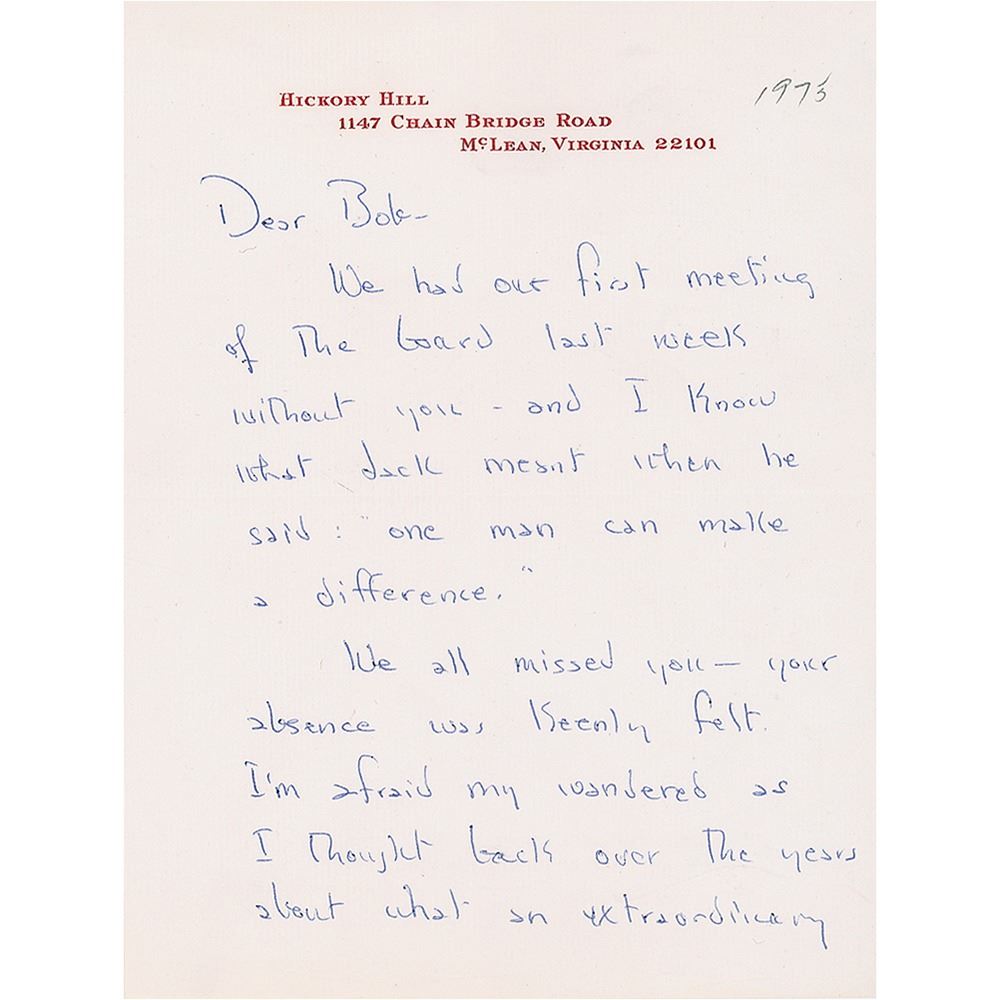 HICKORY HILL
1147 CHAIN BRIDGE ROAD
McLEAN, VIRGINIA 22101
1975
Dear Bob-
We had our first meeting
of the board last week
without you - and I know
what Jack meant when he
said: "one man can make
a difference."
We all missed you - your
absence was keenly felt.
I'm afraid my wandered as
I thought back over the years
about what an extraordinary